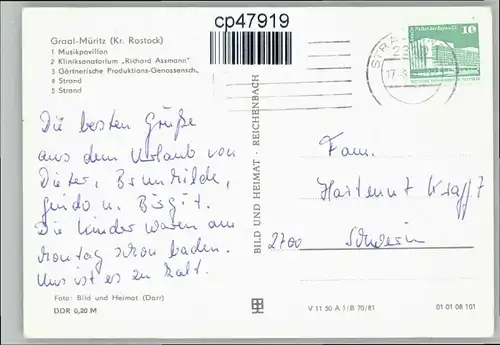 cp47919
Graal-Müritz (Kr. Rostock)
1 Musikpavillon
2 Kliniksanatorium „Richard Assmann"
3 Gärtnerische Produktions-Genossensch
4 Strand
5 Strand
Die besten Grüße
aus dem Urlaub von
Dieter, Brunhilde,
Guido u. Birgit.
Die Kinder waren am
Montag schon baden.
Uns ist es zu kalt.
Foto: Bild und Heimat (Darr)
DDR 0,20 M
BILD UND HEIMAT · REICHENBACH
V 11 50 A 1/B 70/81
01 01 08 101
STRA
17.
10
Fam.
Hartmut Krafft
2700 Schwerin